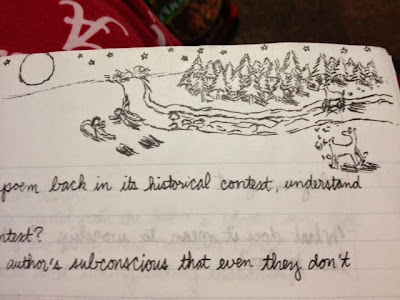 poem back in its historical context, understand
ntext?
author's subconscious that even they don't